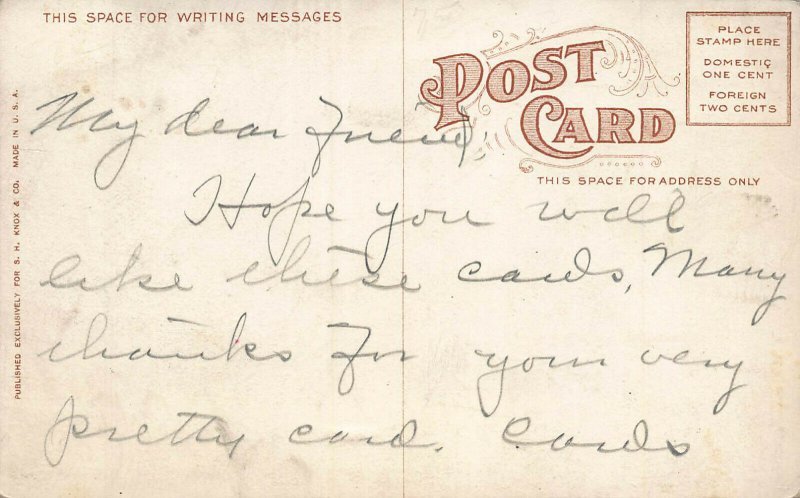 THIS SPACE FOR WRITING MESSAGES
POST CARD
PLACE
STAMP HERE
DOMESTIC
ONE CENT
FOREIGN
TWO CENTS
THIS SPACE FOR ADDRESS ONLY
PUBLISHED EXCLUSIVELY FOR S. H. KNOX & CO. MADE IN U.S.A.
My dear Friend,
Hope you will
like these cards, Many
thanks for your very
pretty card. Cards